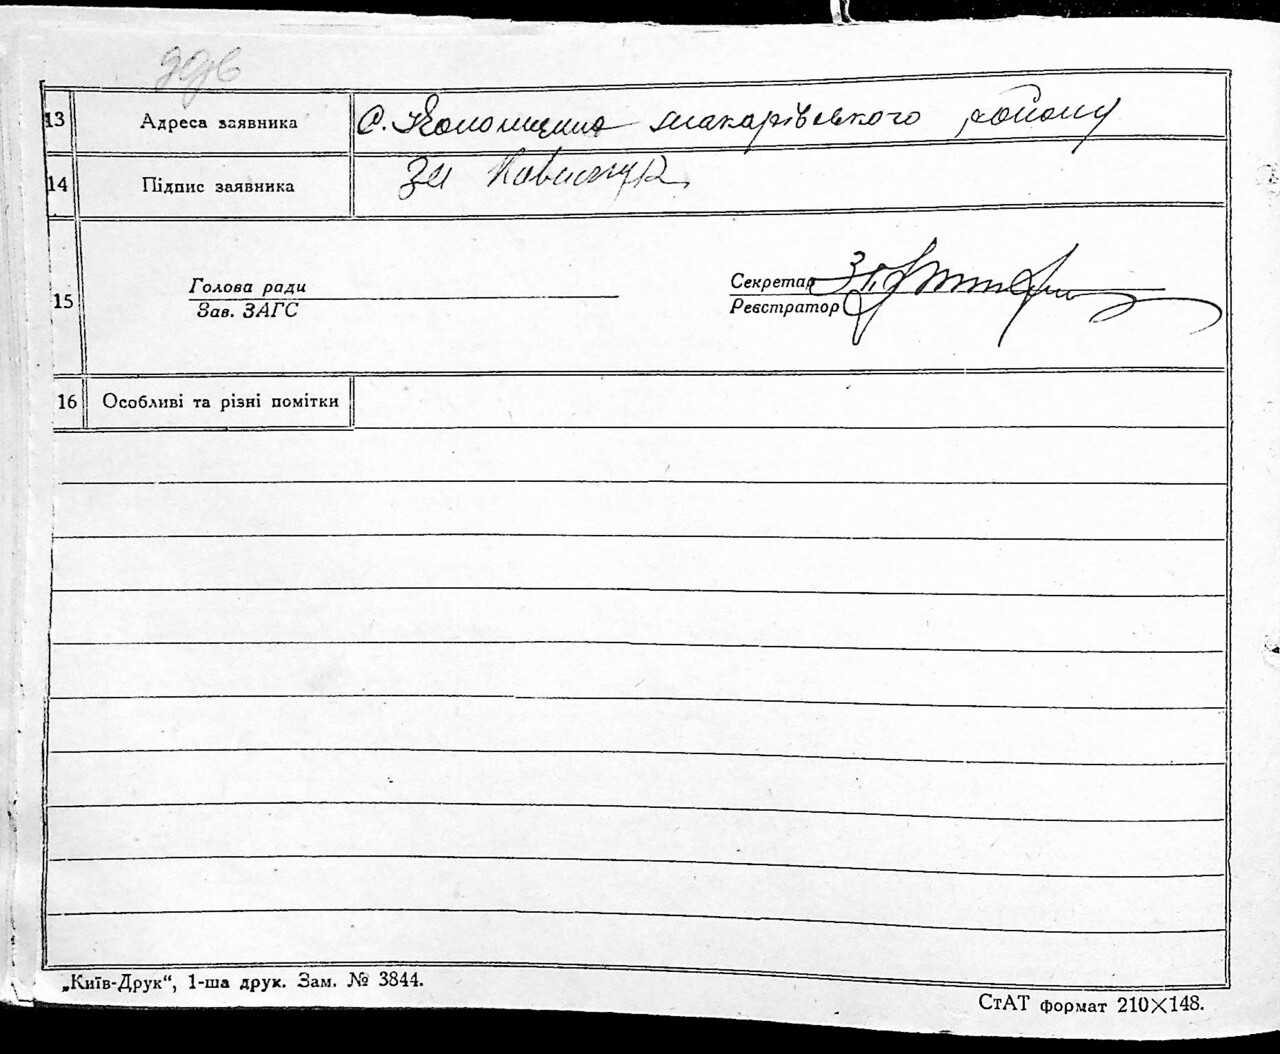 13 Адреса заявника С. Колонщина Макарівського району
14 Підпис заявника За
15 Голова ради
Зав. ЗАГС
Секретар
Реєстратор
16 Особливі та різні помітки
„Київ-Друк“, 1-ша друк. Зам. № 3844.
СтАТ формат 210×148.